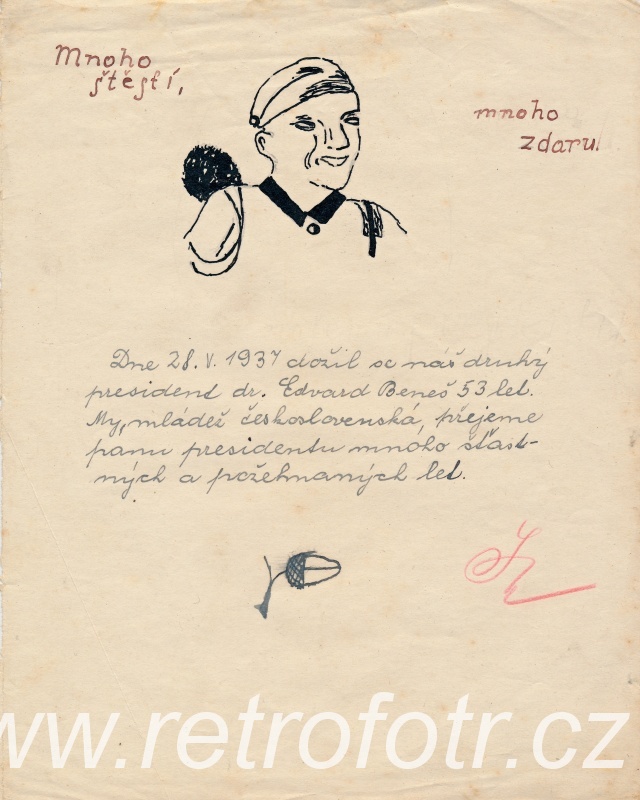 Mnoho
štěstí,
mnoho
zdaru!
Dne 28. V. 1937 dožil se náš druhý
president dr. Edvard Beneš 53 let.
My, mládež československá, přejeme
panu presidentu mnoho šťast-
ných a požehnaných let.
www.retrofotr.cz